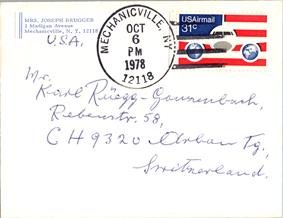 MRS. JOSEPH BRUGGER
2 Madigan Avenue
Mechanicville, N. Y. 12118
U.S.A.
MECHANICVILLE, NY
OCT
6
PM
1978
12118
USAirmail
31c
Mr.
Karl Rüegg-Gonzenbach,
Rebenstr. 58,
CH 9320 Arbon Tg,
Switzerland.